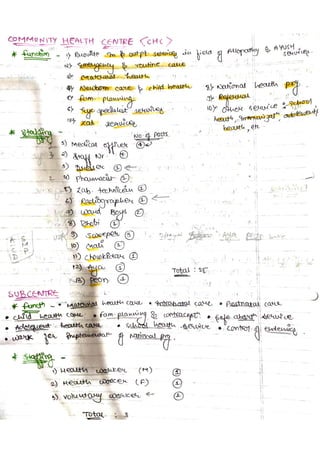 COMMUNITY HEALTH CENTRE (CHC)
* function - 1) Provide in & outpt service in field of Allopathy & AYUSH services.
2) Emergency & routine care
3) Maternal health
4) Newborn care & child health
5) fam planning
6) Eye specialist services
7) Lab services
8) National health prg
9) Referral
10) other service : School health,
health, etc
* Staffing
No. of posts
1) Medical officer (4)
2) Staff Nr
3)
4) Pharmacist (1)
5) Lab technician
6) Radiographer
7) Ward Boys (2)
8) Dhobi (1)
9) Sweeper (3)
10) Mali (1)
11) Chowkidar (1)
12) Aya (1)
13) Peon (1)
Total : 25
SUBCENTRE
* funct - • Maternal health care • Intranatal care • Postnatal care
• child health care • fam planning & contracept • safe abort service
• Adolescent health care • School health service • control of endemics
• work for implementation of National prg.
* Staffing -
1) Health worker (M) (1)
2) Health worker (F) (1)
3) voluntary worker ← (1)
Total : 3